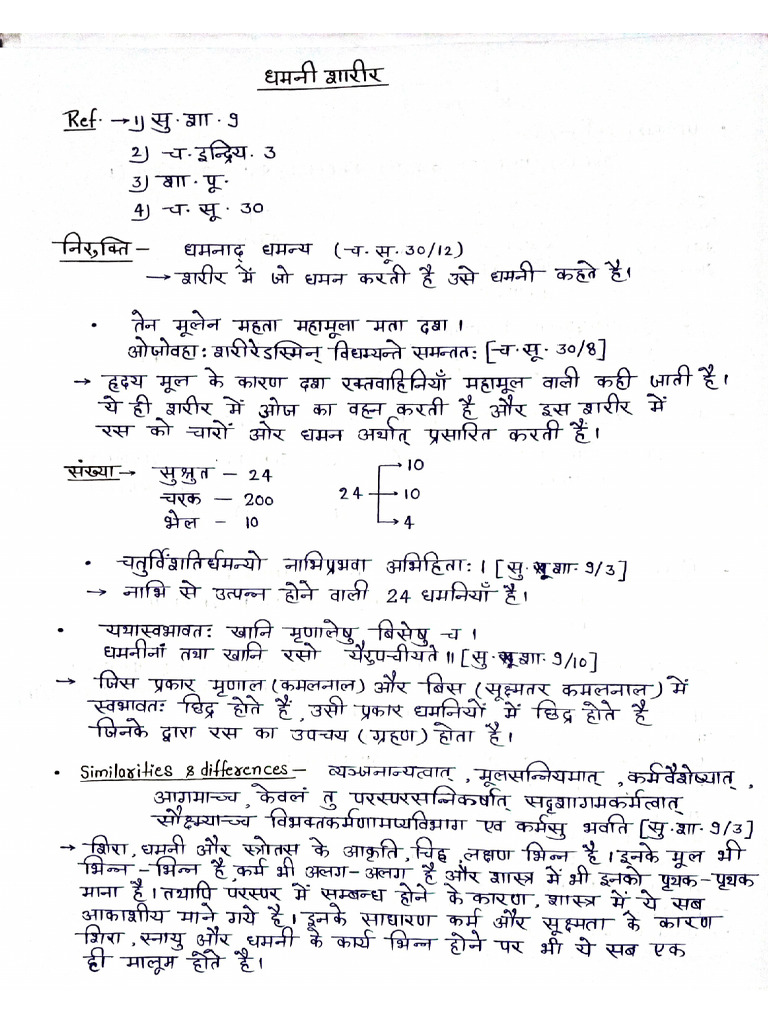 धमनी शारीर
Ref. → 1) सु. शा. 9
2) च. इन्द्रिय. 3
3) शा. पू.
4) च. सू. 30
निरुक्ति – धमनाद् धमन्य (च. सू. 30/12)
→ शरीर में जो धमन करती है उसे धमनी कहते है।
• तेन मूलेन महता महामूला मता दश।
ओजोवहाः शरीरेऽस्मिन् विधम्यन्ते समन्ततः [च. सू. 30/8]
→ हृदय मूल के कारण दश रक्तवाहिनियाँ महामूल वाली कही जाती है।
ये ही शरीर में ओज का वहन करती है और इस शरीर में
रस को चारों ओर धमन अर्थात् प्रसारित करती हैं।
संख्या → सुश्रुत – 24
चरक – 200
भेल – 10
24 → 10
→ 10
→ 4
• चतुर्विंशतिर्धमन्यो नाभिप्रभवा अभिहिताः। [सु. शा. 9/3]
→ नाभि से उत्पन्न होने वाली 24 धमनियाँ है।
• यथास्वभावतः खानि मृणालेषु बिसेषु च।
धमनीनां तथा खानि रसो यैरुपचीयते॥ [सु. शा. 9/10]
→ जिस प्रकार मृणाल (कमलनाल) और बिस (सूक्ष्मतर कमलनाल) में
स्वभावतः छिद्र होते हैं, उसी प्रकार धमनियों में छिद्र होते है
जिनके द्वारा रस का उपचय (ग्रहण) होता है।
• Similarities & differences – व्यञ्जनान्यत्वात्, मूलसन्नियमात्, कर्मवैशेष्यात्,
आगमाच्च, केवलं तु परस्परसन्निकर्षात् सदृशागमकर्मत्वात्
सौक्ष्म्याच्च विभक्तकर्मणामप्यविभाग एव कर्मसु भवति [सु. शा. 9/3]
→ शिरा, धमनी और स्त्रोतस के आकृति, चिह्न, लक्षण भिन्न है। इनके मूल भी
भिन्न-भिन्न है, कर्म भी अलग-अलग है और शास्त्र में भी इनको पृथक-पृथक
माना है। तथापि परस्पर में सम्बन्ध होने के कारण, शास्त्र में ये सब
आकाशीय माने गये है। इनके साधारण कर्म और सूक्ष्मता के कारण
शिरा, स्नायु और धमनी के कार्य भिन्न होने पर भी ये सब एक
ही मालूम होते है।